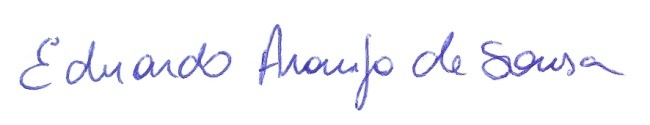 Eduardo Araujo de Sousa